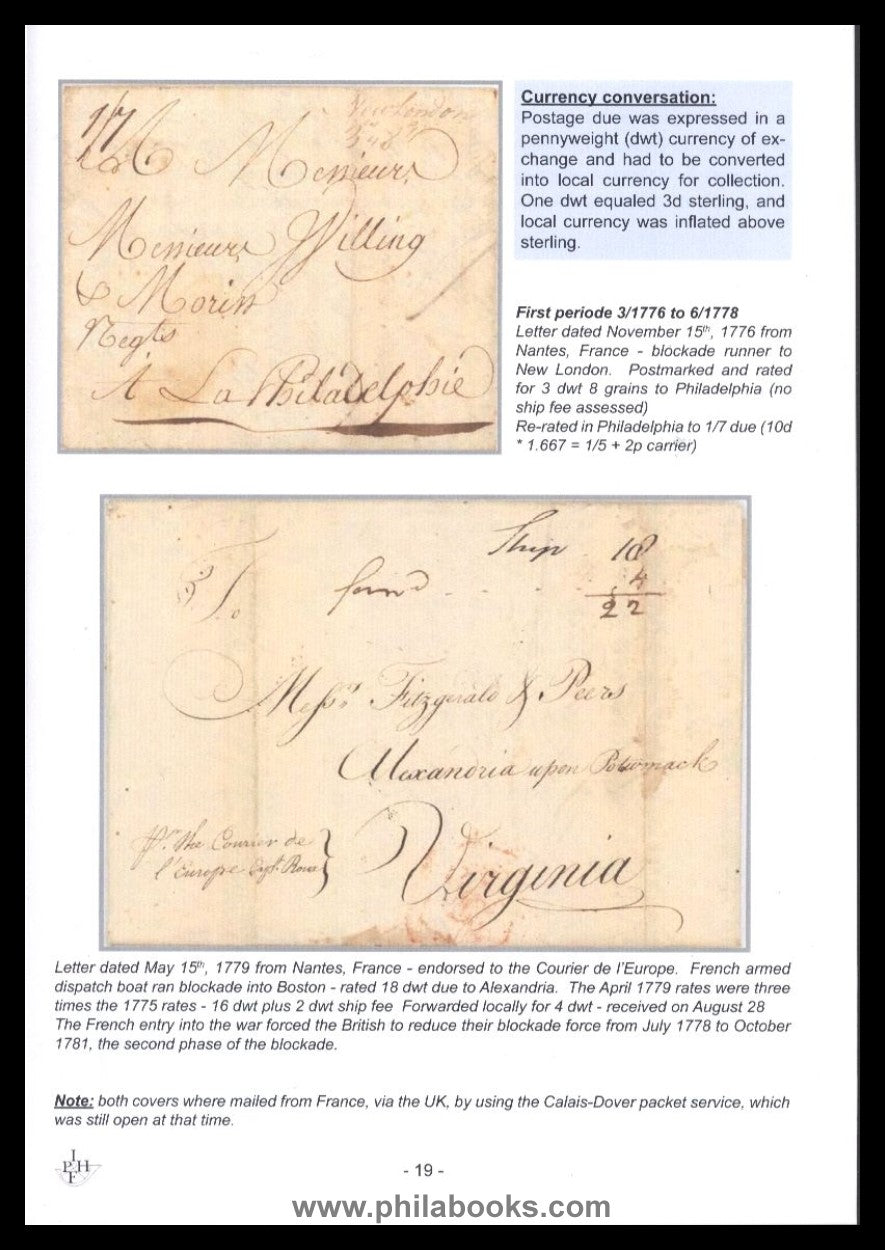 1/7
New London
3dt 8gr
A Messieurs
Messieurs Willing
& Moris
Negts
A La Philadelphie
Currency conversation:
Postage due was expressed in a
pennyweight (dwt) currency of ex-
change and had to be converted
into local currency for collection.
One dwt equaled 3d sterling, and
local currency was inflated above
sterling.
First periode 3/1776 to 6/1778
Letter dated November 15th, 1776 from
Nantes, France - blockade runner to
New London. Postmarked and rated
for 3 dwt 8 grains to Philadelphia (no
ship fee assessed)
Re-rated in Philadelphia to 1/7 due (10d
* 1.667 = 1/5 + 2p carrier)
Ship 18
forwd 4
22
To
Messrs Fitzgerald & Peers
Alexandria upon Potowmack
Virginia
pr the Courier de
l'Europe Capt. Rowe
Letter dated May 15th, 1779 from Nantes, France - endorsed to the Courier de l'Europe. French armed
dispatch boat ran blockade into Boston - rated 18 dwt due to Alexandria. The April 1779 rates were three
times the 1775 rates - 16 dwt plus 2 dwt ship fee Forwarded locally for 4 dwt - received on August 28
The French entry into the war forced the British to reduce their blockade force from July 1778 to October
1781, the second phase of the blockade.
Note: both covers where mailed from France, via the UK, by using the Calais-Dover packet service, which
was still open at that time.
I
P H
F
- 19 -
www.philabooks.com